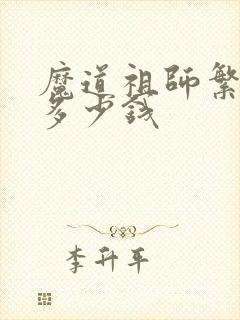 魔道祖师繁
多少钱
李升平